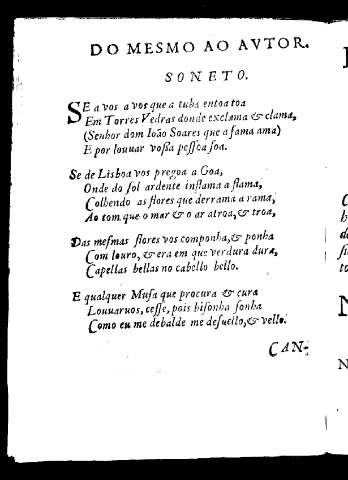 DO MESMO AO AVTOR.
SONETO.
SE a vos a vos que a tuba entoa toa
Em Torres Vedras donde exclama & clama,
(Senhor dom Ioão Soares que a fama ama)
E por louuar vossa pessoa soa.
Se de Lisboa vos pregoa a Goa,
Onde do sol ardente inflama a flama,
Colhendo as flores que derrama a rama,
Ao tom que o mar & o ar atroa, & troa,
Das mesmas flores vos componha, & ponha
Com louro, & era em que verdura dura,
Capellas bellas no cabello bello.
E qualquer Musa que procura & cura
Louuaruos, cesse, pois bisonha sonha
Como eu me debalde me desuello, & vello.
CAN-